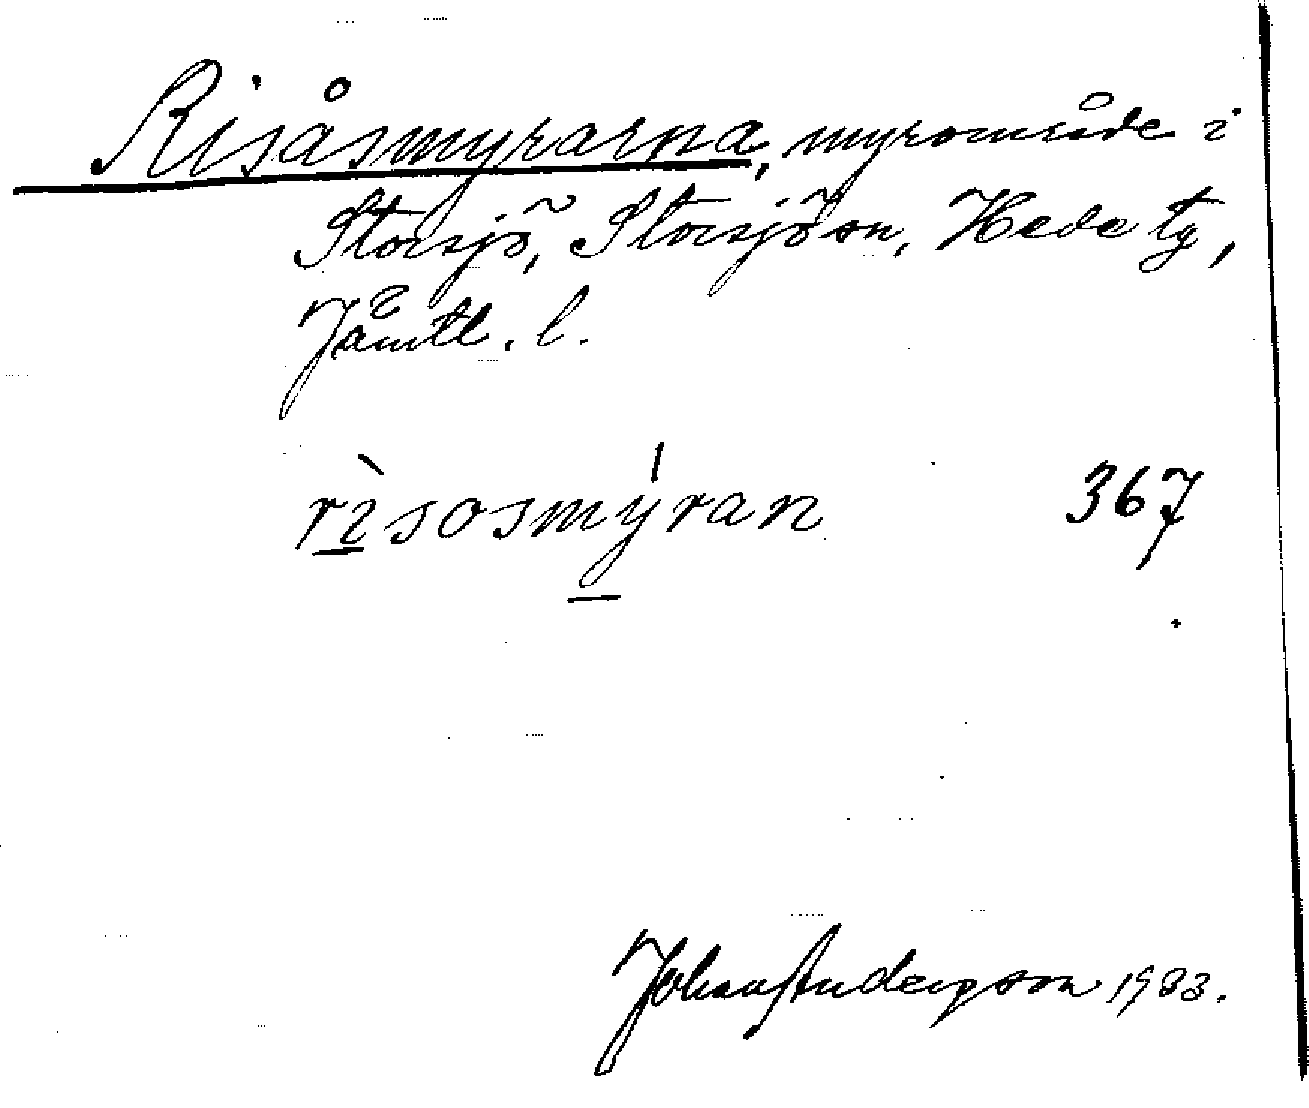 Risåsmyrarna, myrområde i
Storsjö, Storsjö sn, Hede tg,
Jämtl. l.
rìsosmýran 367
Johan Anderson 1933.